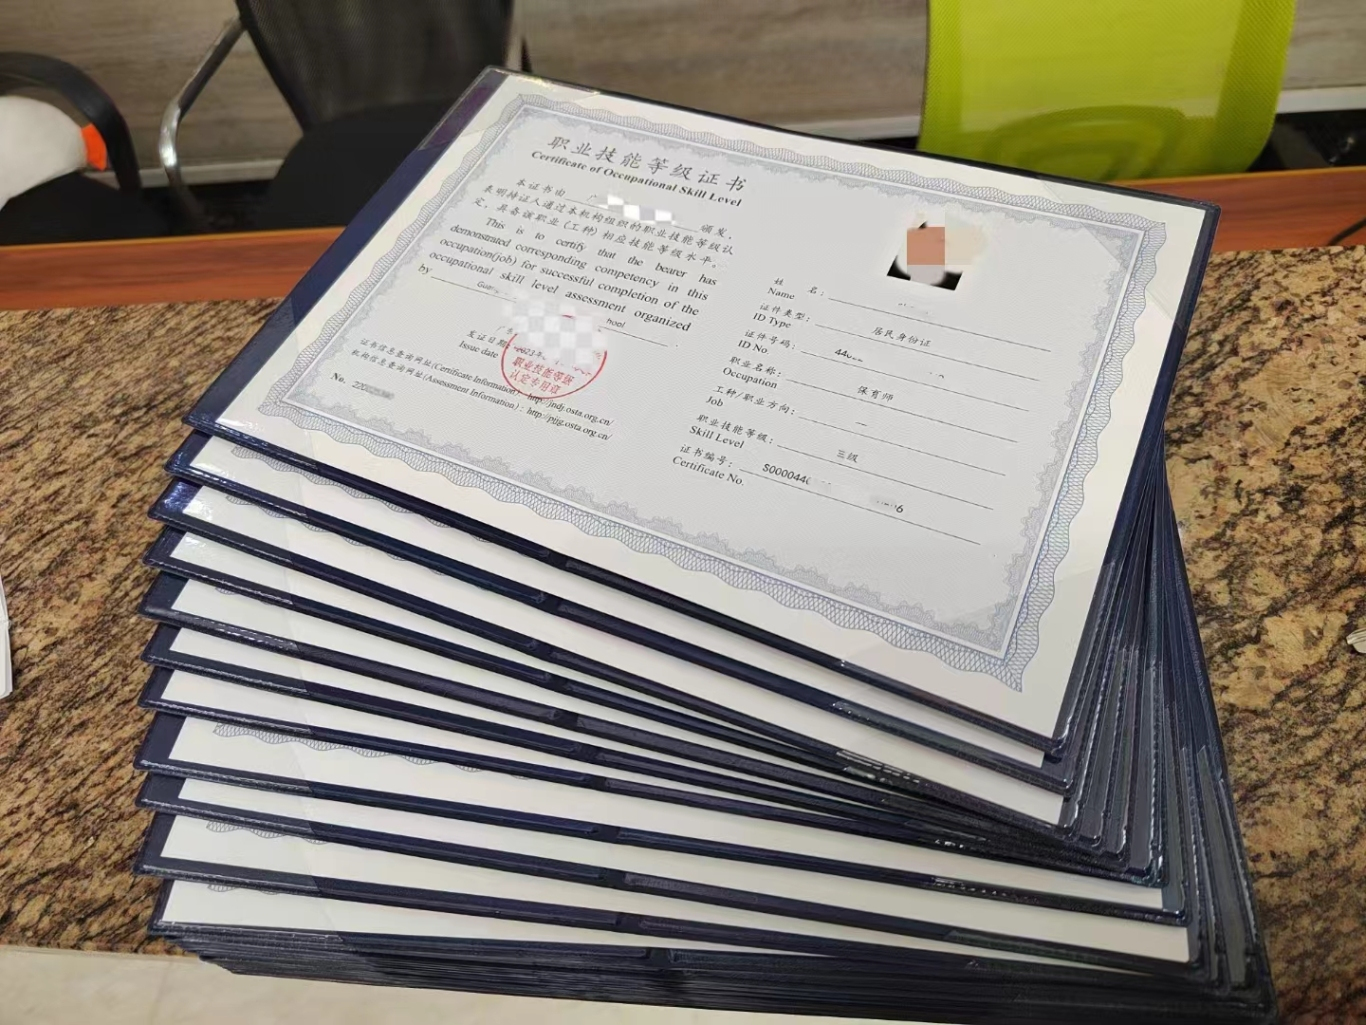 职业技能等级证书
Certificate of Occupational Skill Level
本证书由 颁发，
表明持证人通过本机构组织的职业技能等级认
定，具备该职业（工种）相应技能等级水平。
This is to certify that the bearer has
demonstrated corresponding competency in this
occupation(job) for successful completion of the
occupational skill level assessment organized
by
发证日期 2023年
Issue date
职业技能等级
认定专用章
证书信息查询网址(Certificate Information)：http://jndj.osta.org.cn/
机构信息查询网址(Assessment Information)：http://pjjg.osta.org.cn/
No.
姓 名：
Name
证件类型： 居民身份证
ID Type
证件号码：
ID No
职业名称： 保育师
Occupation
工种/职业方向： —
Job
职业技能等级： 三级
Skill Level
证书编号： S000044
Certificate No.